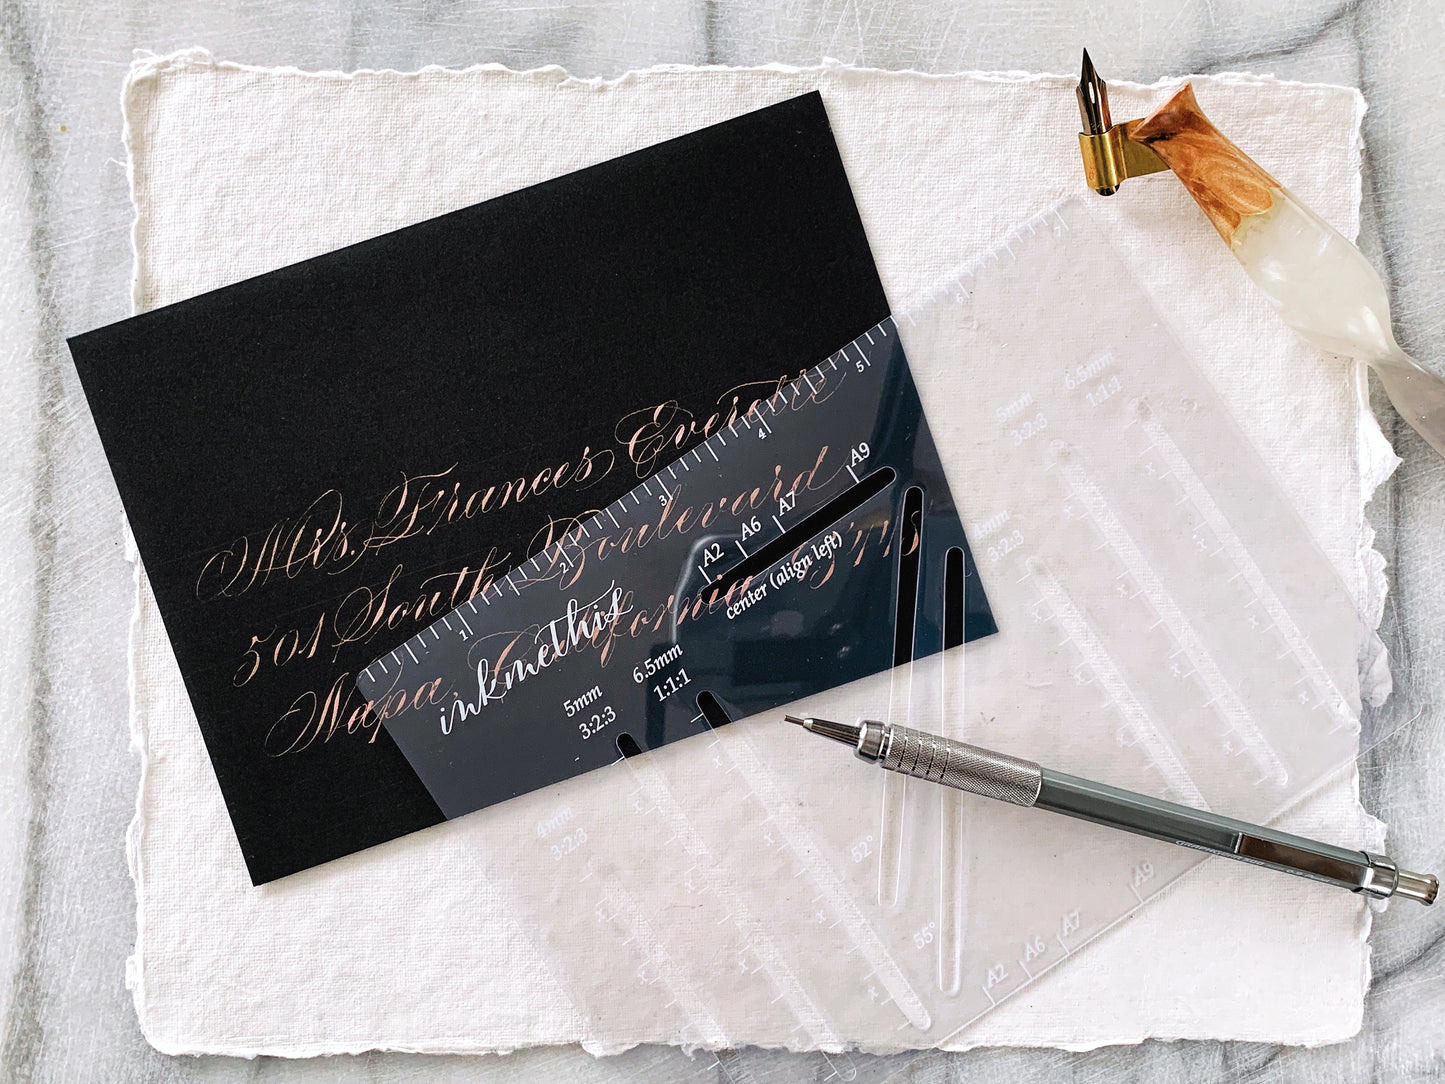 Mrs. Frances Everette
501 South Boulevard
Napa, California
1 2 3 4 5 6 7
A2 A6 A7 A9
center (align left)
inkmethis
5mm
3:2:3
6.5mm
1:1:1
4mm
3:2:3
5mm
3:2:3
6.5mm
1:1:1
4mm
3:2:3
52°
55°
A2 A6 A7 A9